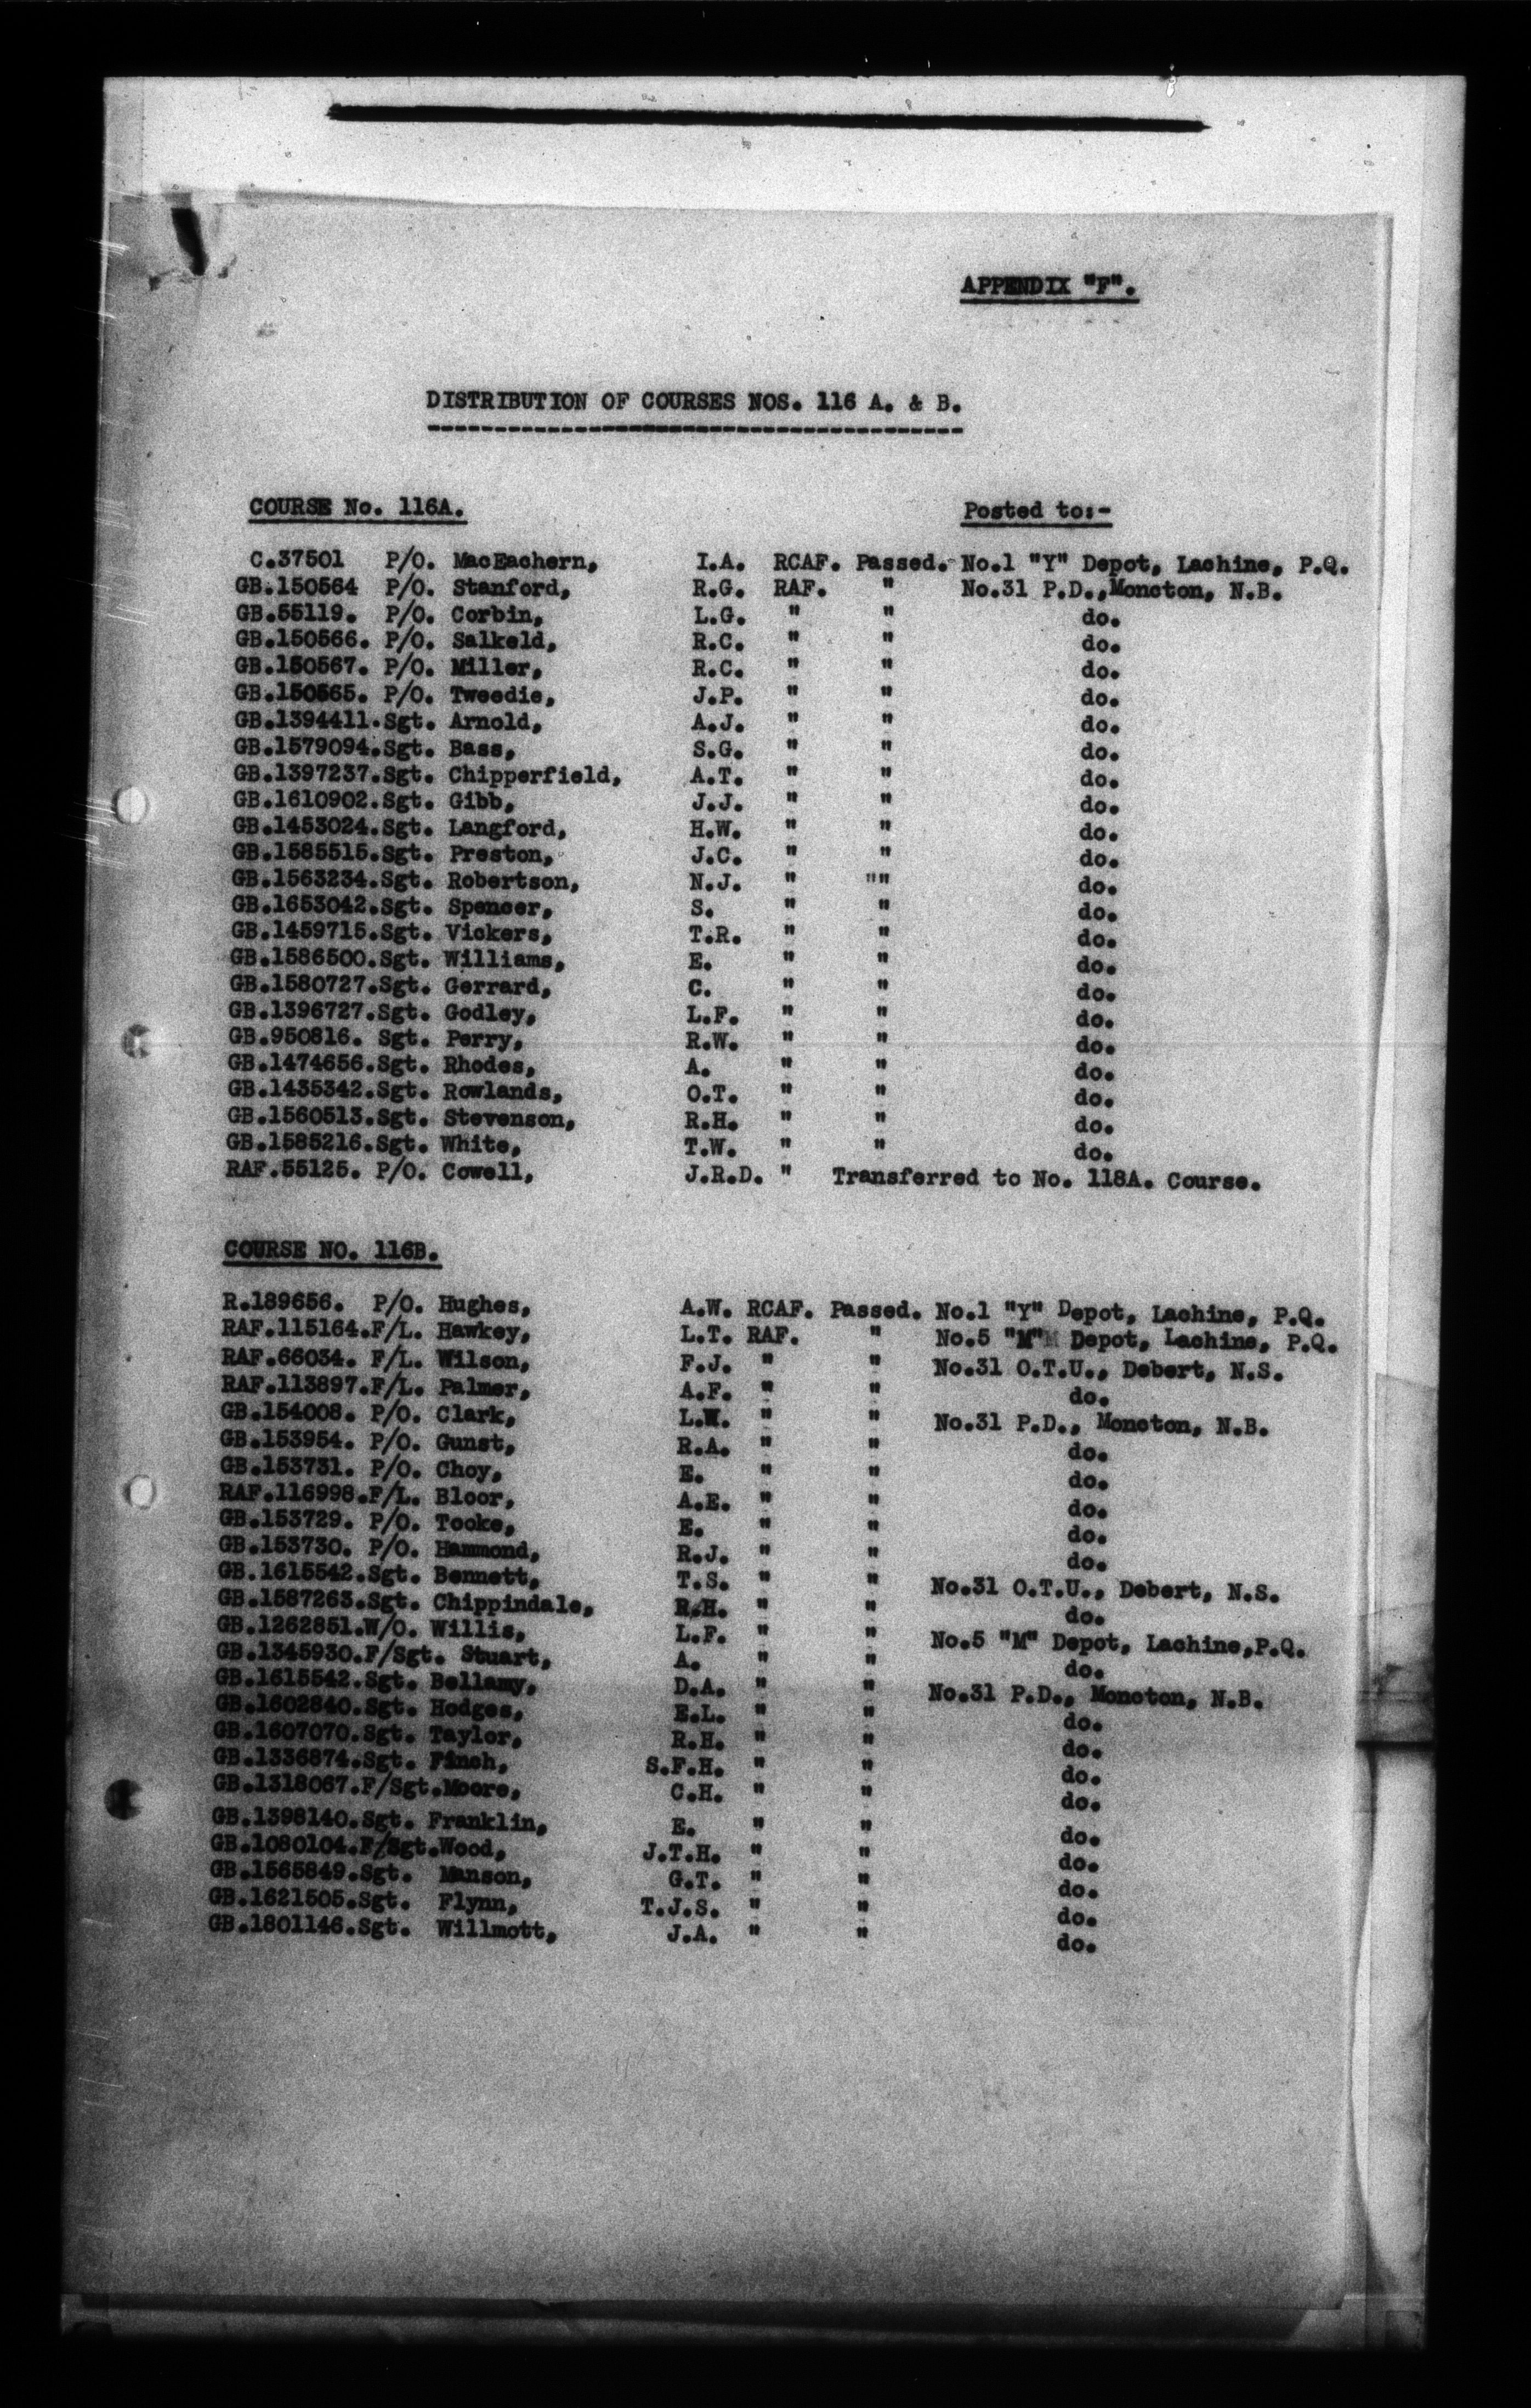 APPENDIX "F".
DISTRIBUTION OF COURSES NOS. 116 A. & B.
COURSE No. 116A. Posted to:-
C.37501 P/O. MacEachern, I.A. RCAF. Passed. No.1 "Y" Depot, Lachine, P.Q.
GB.150564 P/O. Stanford, R.G. RAF. " No.31 P.D., Moncton, N.B.
GB.55119. P/O. Corbin, L.G. " " do.
GB.150566. P/O. Salkeld, R.C. " " do.
GB.150567. P/O. Miller, R.C. " " do.
GB.150565. P/O. Tweedie, J.P. " " do.
GB.1394411.Sgt. Arnold, A.J. " " do.
GB.1579094.Sgt. Bass, S.G. " " do.
GB.1397237.Sgt. Chipperfield, A.T. " " do.
GB.1610902.Sgt. Gibb, J.J. " " do.
GB.1453024.Sgt. Langford, H.W. " " do.
GB.1585515.Sgt. Preston, J.C. " " do.
GB.1563234.Sgt. Robertson, N.J. " "" do.
GB.1653042.Sgt. Spencer, S. " " do.
GB.1459715.Sgt. Vickers, T.R. " " do.
GB.1586500.Sgt. Williams, E. " " do.
GB.1580727.Sgt. Gerrard, C. " " do.
GB.1396727.Sgt. Godley, L.F. " " do.
GB.950816. Sgt. Perry, R.W. " " do.
GB.1474656.Sgt. Rhodes, A. " " do.
GB.1435342.Sgt. Rowlands, O.T. " " do.
GB.1560513.Sgt. Stevenson, R.H. " " do.
GB.1585216.Sgt. White, T.W. " " do.
RAF.55125. P/O. Cowell, J.R.D. " Transferred to No. 118A. Course.
COURSE NO. 116B.
R.189656. P/O. Hughes, A.W. RCAF. Passed. No.1 "Y" Depot, Lachine, P.Q.
RAF.115164.F/L. Hawkey, L.T. RAF. " No.5 "M" Depot, Lachine, P.Q.
RAF.66034. F/L. Wilson, F.J. " " No.31 O.T.U., Debert, N.S.
RAF.113897.F/L. Palmer, A.F. " " do.
GB.154008. P/O. Clark, L.W. " " No.31 P.D., Moncton, N.B.
GB.153954. P/O. Gunst, R.A. " " do.
GB.153731. P/O. Choy, E. " " do.
RAF.116998.F/L. Bloor, A.E. " " do.
GB.153729. P/O. Tooke, E. " " do.
GB.153730. P/O. Hammond, R.J. " " do.
GB.1615542.Sgt. Bennett, T.S. " " No.31 O.T.U., Debert, N.S.
GB.1587263.Sgt. Chippindale, R.H. " " do.
GB.1262851.W/O. Willis, L.F. " " No.5 "M" Depot, Lachine,P.Q.
GB.1345930.F/Sgt. Stuart, A. " " do.
GB.1615542.Sgt. Bellamy, D.A. " " No.31 P.D., Moncton, N.B.
GB.1602840.Sgt. Hodges, E.L. " " do.
GB.1607070.Sgt. Taylor, R.H. " " do.
GB.1336874.Sgt. Finch, S.F.H. " " do.
GB.1318067.F/Sgt.Moore, C.H. " " do.
GB.1398140.Sgt. Franklin, E. " " do.
GB.1080104.F/Sgt.Wood, J.T.H. " " do.
GB.1565849.Sgt. Manson, G.T. " " do.
GB.1621505.Sgt. Flynn, T.J.S. " " do.
GB.1801146.Sgt. Willmott, J.A. " " do.